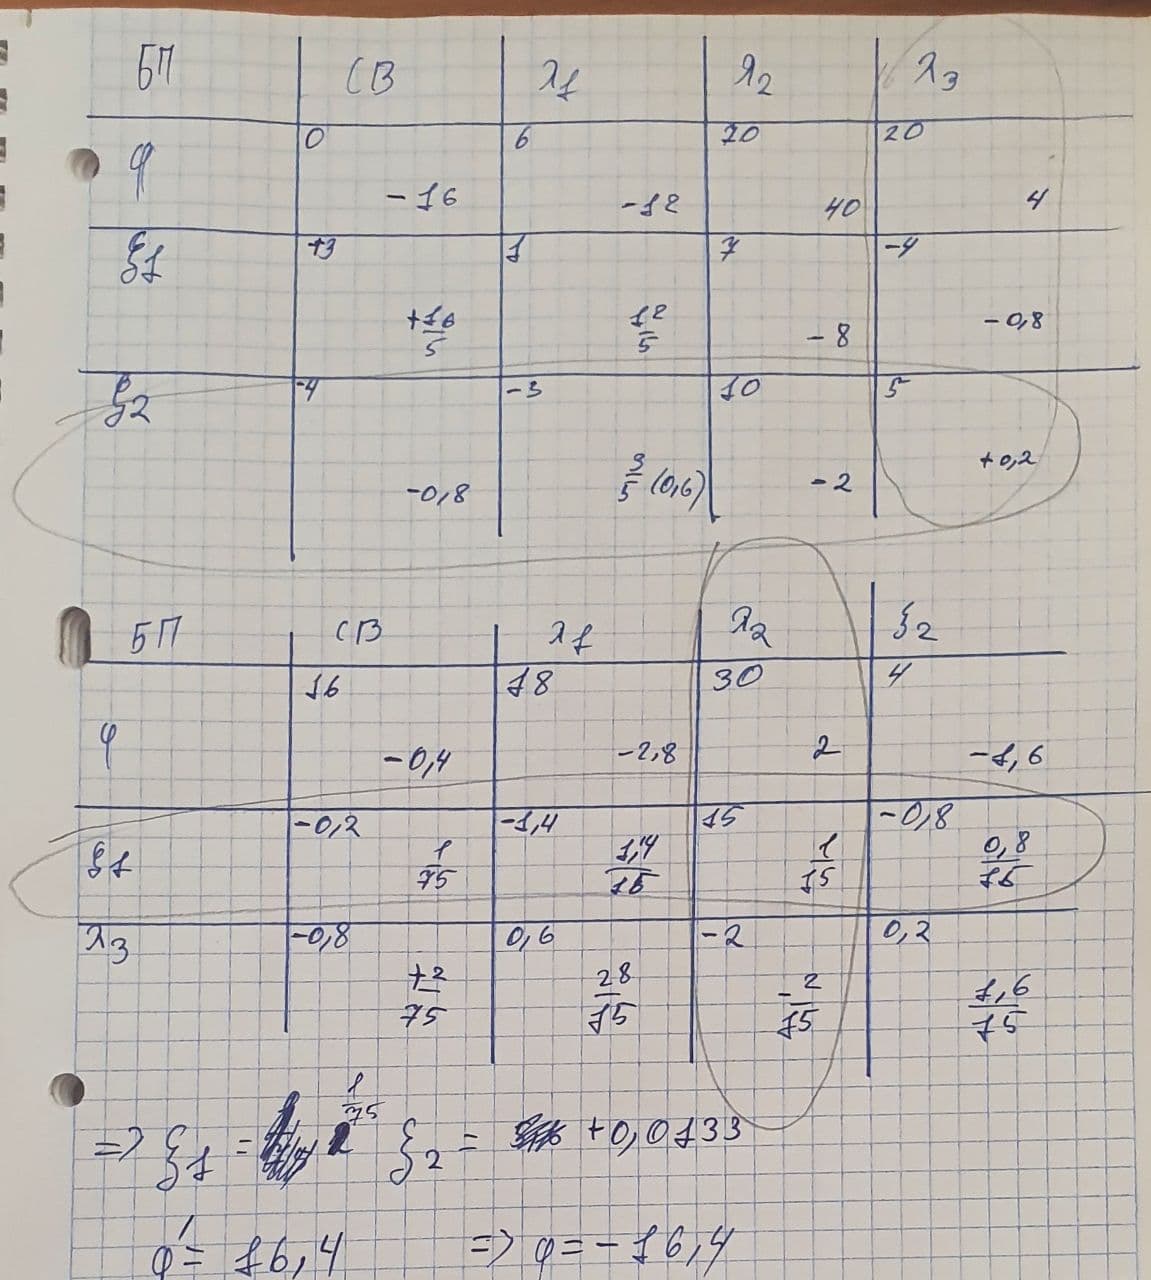 БП СВ λ1 λ2 λ3
φ 0 -16 6 -12 20 40 20 4
ξ1 +3 +16/5 1 12/5 7 -8 -4 -0,8
ξ2 -4 -0,8 -3 3/5 (0,6) 10 -2 5 +0,2
БП СВ λ1 λ2 ξ2
φ 16 -0,4 18 -2,8 30 2 4 -1,6
ξ1 -0,2 1/75 -1,4 1,4/15 15 1/15 -0,8 0,8/15
λ3 -0,8 +2/75 0,6 28/15 -2 -2/15 0,2 1,6/15
=> ξ1 = 1/75 ξ2 = +0,0133
φ' = 16,4 => φ = -16,4